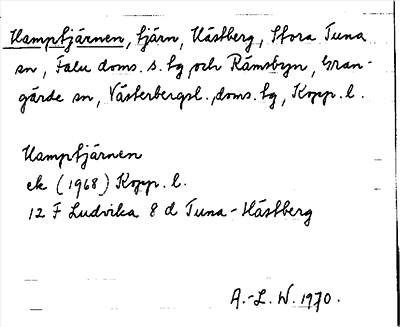 Hamptjärnen, tjärn, Hästberg, Stora Tuna
sn, Falu doms. s. tg, och Rämsbyn, Gran-
gärde sn, Västerbergsl. doms. tg, Kopp. l.
Hamptjärnen
ek (1968) Kopp. l.
12 F Ludvika 8 d Tuna-Hästberg
A.-L. W. 1970.